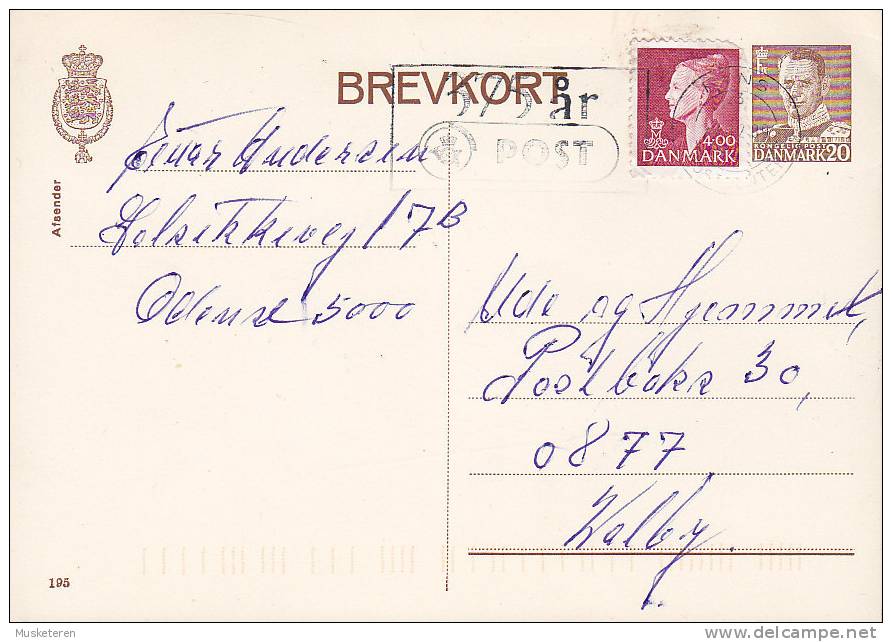 BREVKORT
375 år
POST
4.00
DANMARK
KONGELIG POST
DANMARK 20
Afsender
Andersen
17B
Odense 5000
Ude og Hjemmet,
Postboks 30,
0877
Valby.
195
Musketeren
delcampe.net